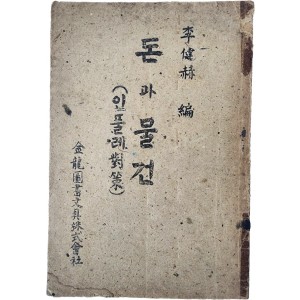 李健赫 編
돈과 물건
(인플레對策)
金龍圖書文具株式會社